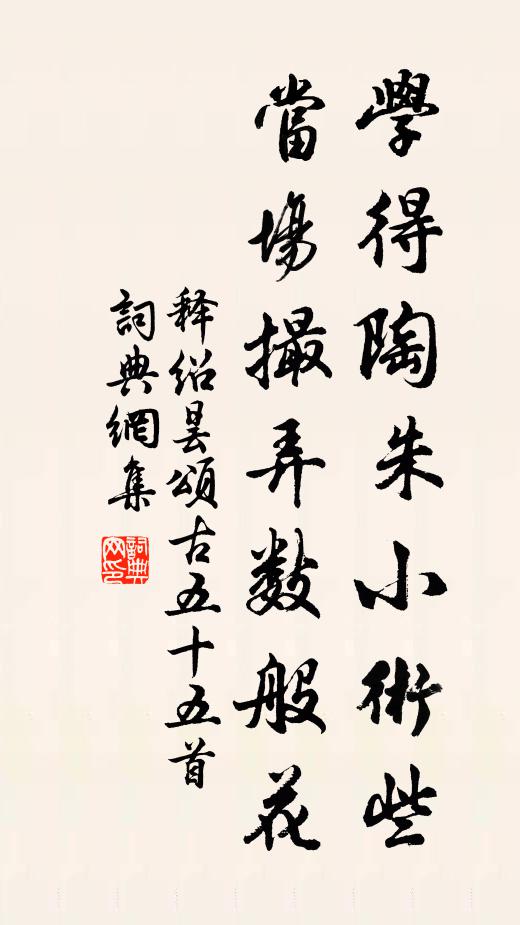 學得陶朱小術些
當場撮弄數般花
释紹曇頌古五十五首
詞典網集
詞典网印